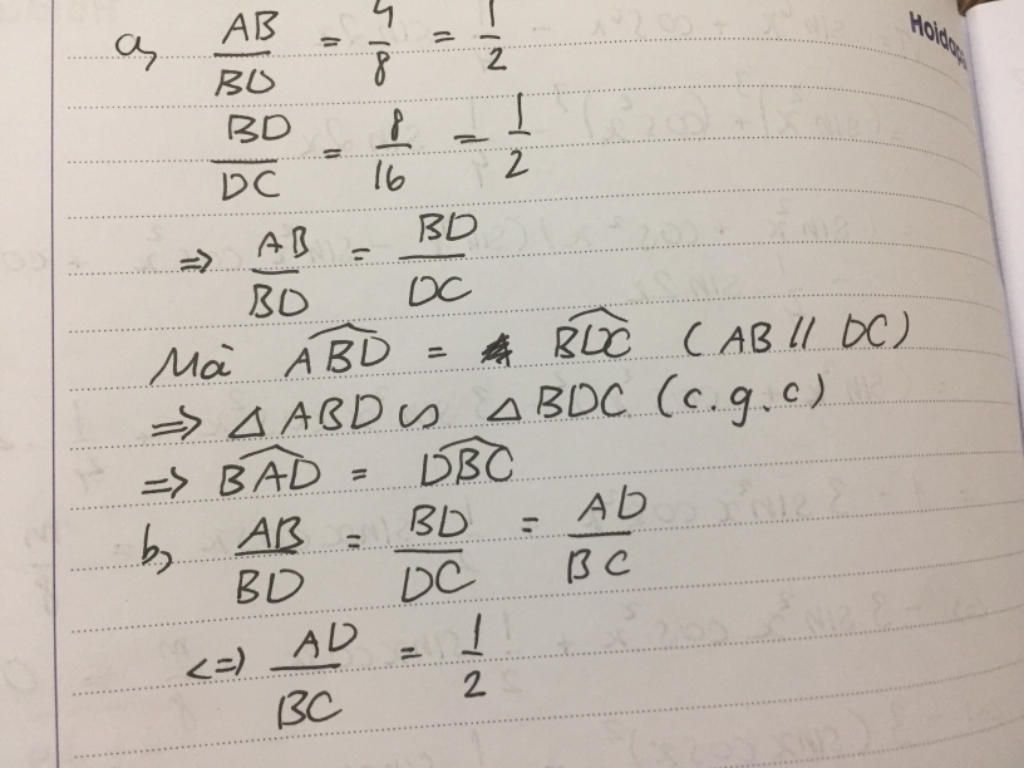 a, AB/BD = 4/8 = 1/2
BD/DC = 8/16 = 1/2
=> AB/BD = BD/DC
Mà \widehat{ABD} = \widehat{BDC} (AB // DC)
=> △ABD ∽ △BDC (c.g.c)
=> \widehat{BAD} = \widehat{DBC}
b, AB/BD = BD/DC = AD/BC
<=> AD/BC = 1/2